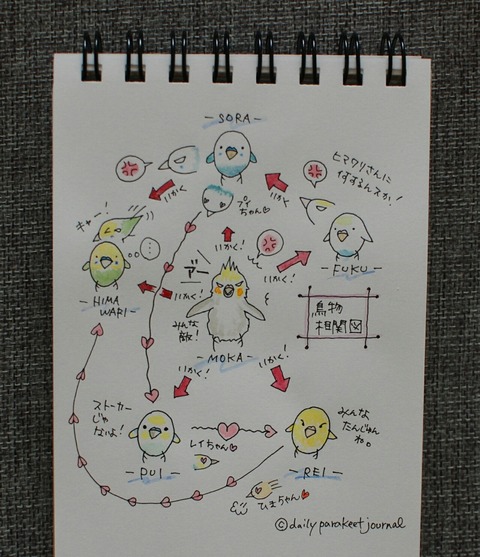 -SORA-
ヒマワリさんに
何するんスか!
いかく
いかく
プイ
ちゃん♡
キャー!
・・・
いかく
-FUKU-
いかく!
デー
いかく!
-HIMA
WARI-
みんな
敵!
鳥物
相関図
-MOKA-
いかく!
いかく!
ストーカー
じゃ
ないよ!
みんな
たんじゅん
ね。
レイちゃん♥
-PUI-
-REI-
ひまちゃん♥
©daily parakeet journal